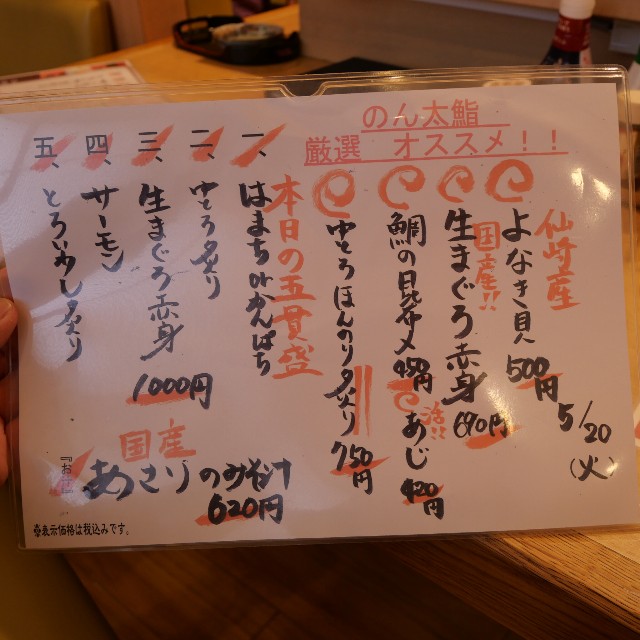 のん太鮨
厳選 オススメ！！
5/20
(火)
仙崎産
よなき貝
500円
国産!!
生まぐろ赤身
690円
鯛の昆布〆
450円
活!!
あじ
420円
中とろほんのり炙り
750円
本日の五貫盛
一、はまちorかんぱち
二、中とろ炙り
三、生まぐろ赤身
四、サーモン
五、とろいわし炙り
1000円
国産
あさりのみそ汁
620円
※表示価格は税込みです。